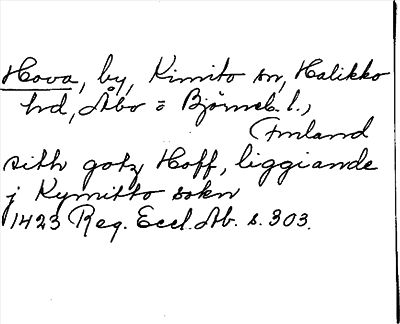 Hova, by, Kimito sn, Halikko
hd, Åbo = Björneb. l.,
(Finland
sith gotz Hoff, liggiande
j Kymitto sokn
1423 Reg. Eccl. Ab. s. 303.